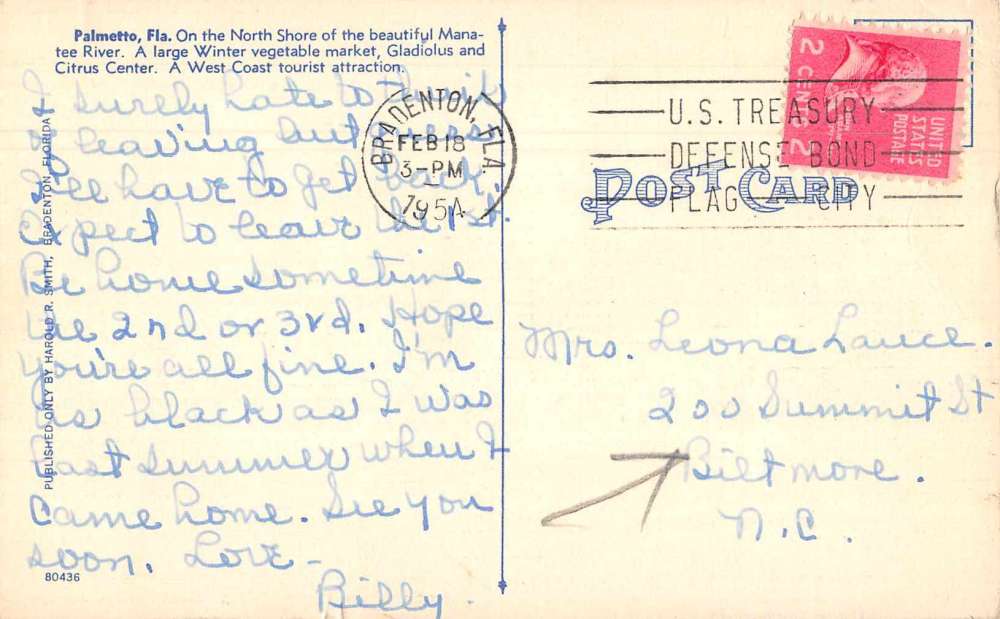 Palmetto, Fla. On the North Shore of the beautiful Mana-
tee River. A large Winter vegetable market, Gladiolus and
Citrus Center. A West Coast tourist attraction.
I surely hate to think
of leaving but guess
I'll have to get back.
Expect to leave the 1st.
Be home sometime
the 2nd or 3rd. Hope
you're all fine. I'm
as black as I was
last summer when I
came home. See you
soon. Love -
Billy.
80436
PUBLISHED ONLY BY HAROLD R. SMITH, BRADENTON, FLORIDA
BRADENTON, FLA.
FEB 18
3-PM
1954
U.S. TREASURY
DEFENSE BOND
FLAG CITY
2 CENTS 2
UNITED
STATES
POSTAGE
POST CARD
Mrs. Leona Lance.
200 Summit St
Biltmore.
N.C.